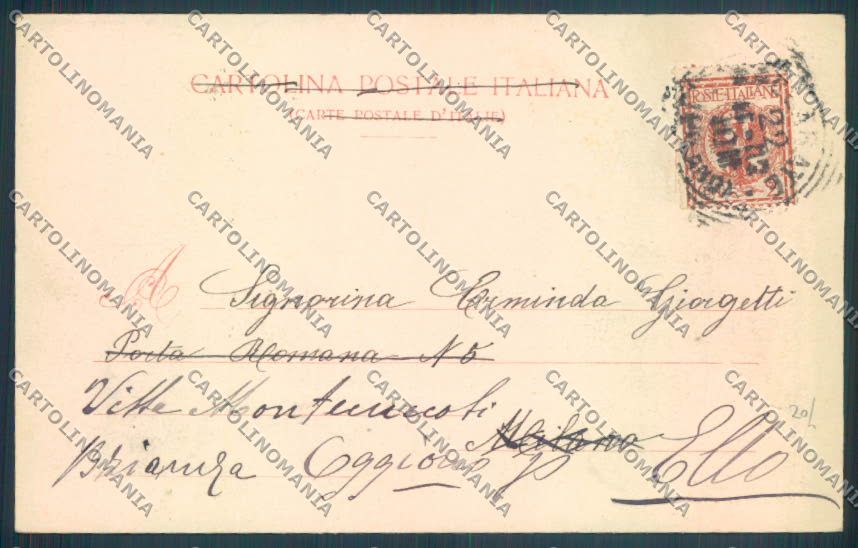 CARTOLINA POSTALE ITALIANA
(CARTE POSTALE D'ITALIE)
POSTE ITALIANE
22
A Signorina Erminda Giorgetti
Porta Romana N 5
Villa Montecuccoli
Milano
Brianza Oggiono p Ello
20/
CARTOLINOMANIA